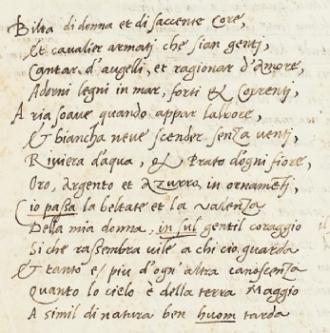 Bilta di donna et di saccente Core,
Et cavalier armati che sian genti,
Cantar d'augelli, et ragionar d'Amore,
Adorni legni in mar, forti & correnti,
Aria soave quando appar l'albore,
Et biancha neve scender senza venti,
Riviera d'aqua, & Prato d'ogni fiore,
Oro, Argento et Azurro, in ornamēti,
Cio passa la beltate et la valenza
Della mia donna, in sul gentil coraggio
Si che rassembra vile a chi cio guarda
& tanto e/ piu d'ogni altra canoscenza
Quanto lo cielo è della terra Maggio
A simil di natura ben huom tarda